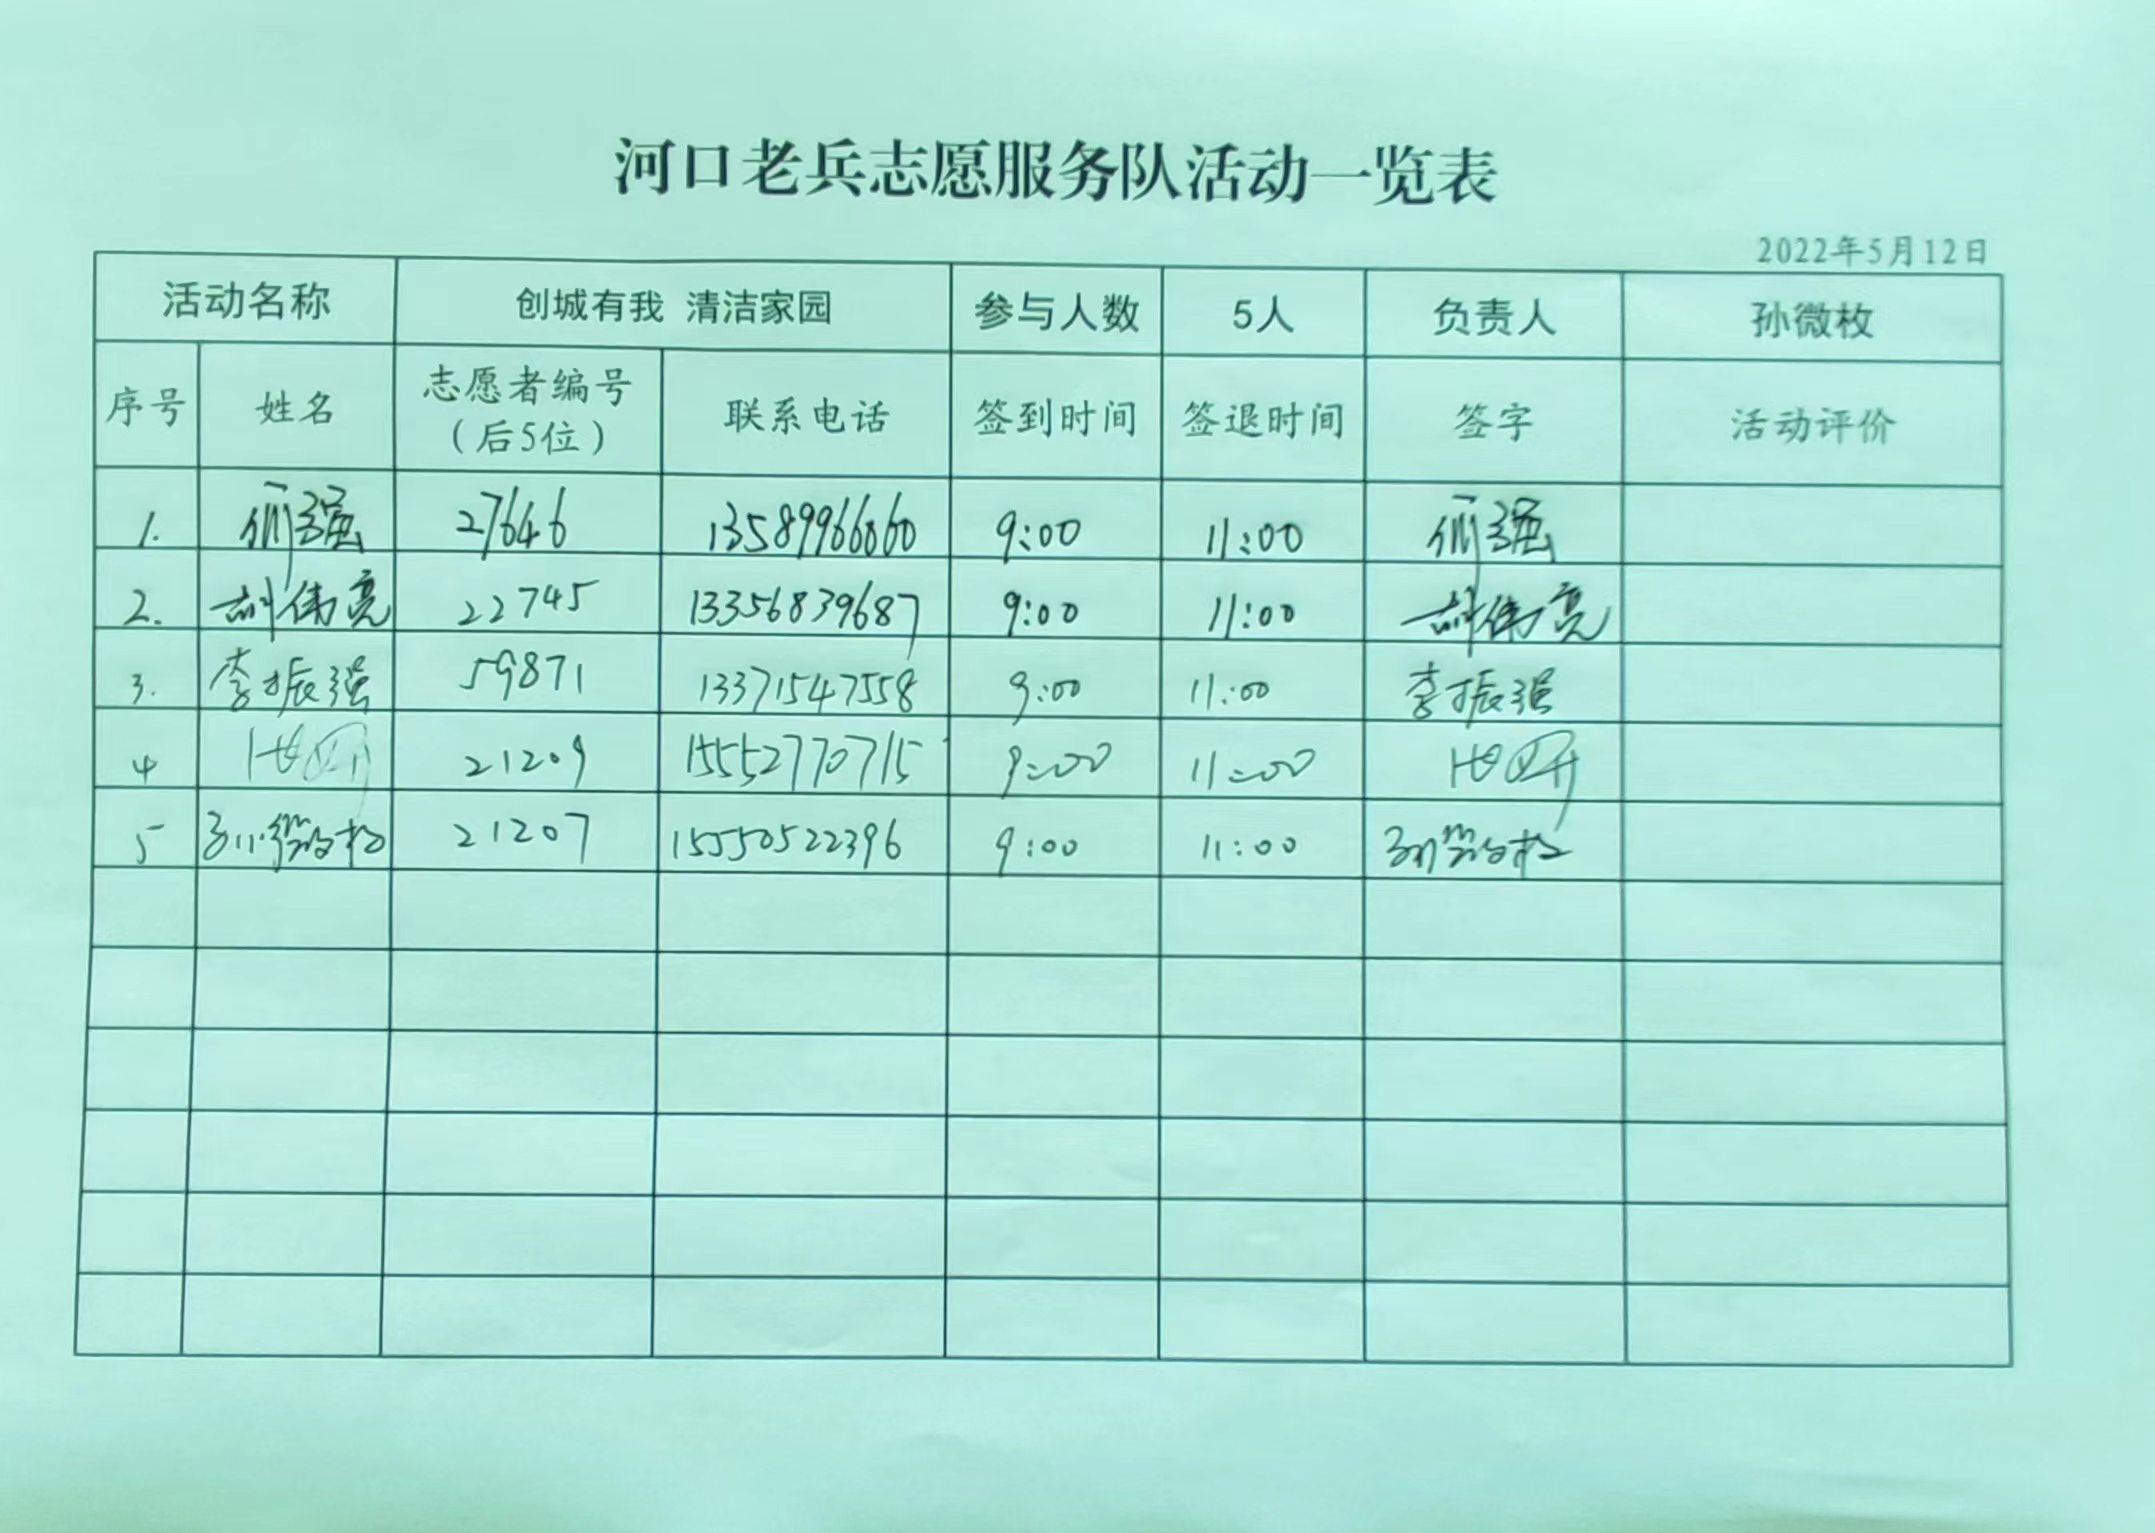 河口老兵志愿服务队活动一览表
2022年5月12日
活动名称 创城有我 清洁家园 参与人数 5人 负责人 孙微枚
序号 姓名 志愿者编号（后5位） 联系电话 签到时间 签退时间 签字 活动评价
1. 27646 13589966060 9:00 11:00
2. 22745 13356839687 9:00 11:00
3. 李振强 59871 13371547558 9:00 11:00 李振强
4 21209 15552770715 9:00 11:00
5 孙微枚 21207 15550522396 9:00 11:00 孙微枚